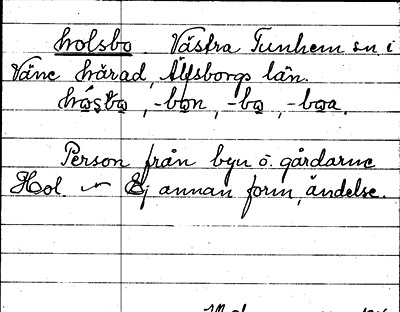 holsbo. Västra Tunhem sn i
Väne härad, Älfsborgs län.
-bon, -bo, -boa.
Person från byn o. gårdarne
Hol. Ej annan form, ändelse.